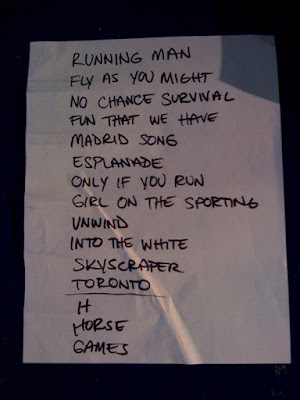 RUNNING MAN
FLY AS YOU MIGHT
NO CHANCE SURVIVAL
FUN THAT WE HAVE
MADRID SONG
ESPLANADE
ONLY IF YOU RUN
GIRL ON THE SPORTING
UNWIND
INTO THE WHITE
SKYSCRAPER
TORONTO
H
HORSE
GAMES